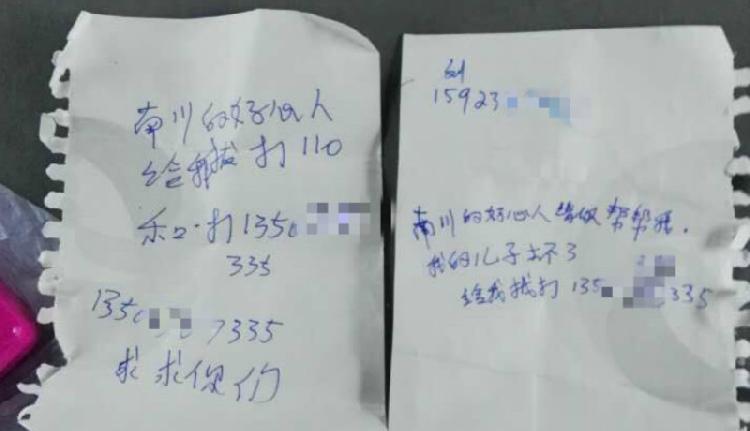 南川的好心人
给我拨打110
和.打1350
335
1350 7335
求求你们
15923
南川的好心人 帮帮我.
我的儿子 不了
给我拨打 135 335